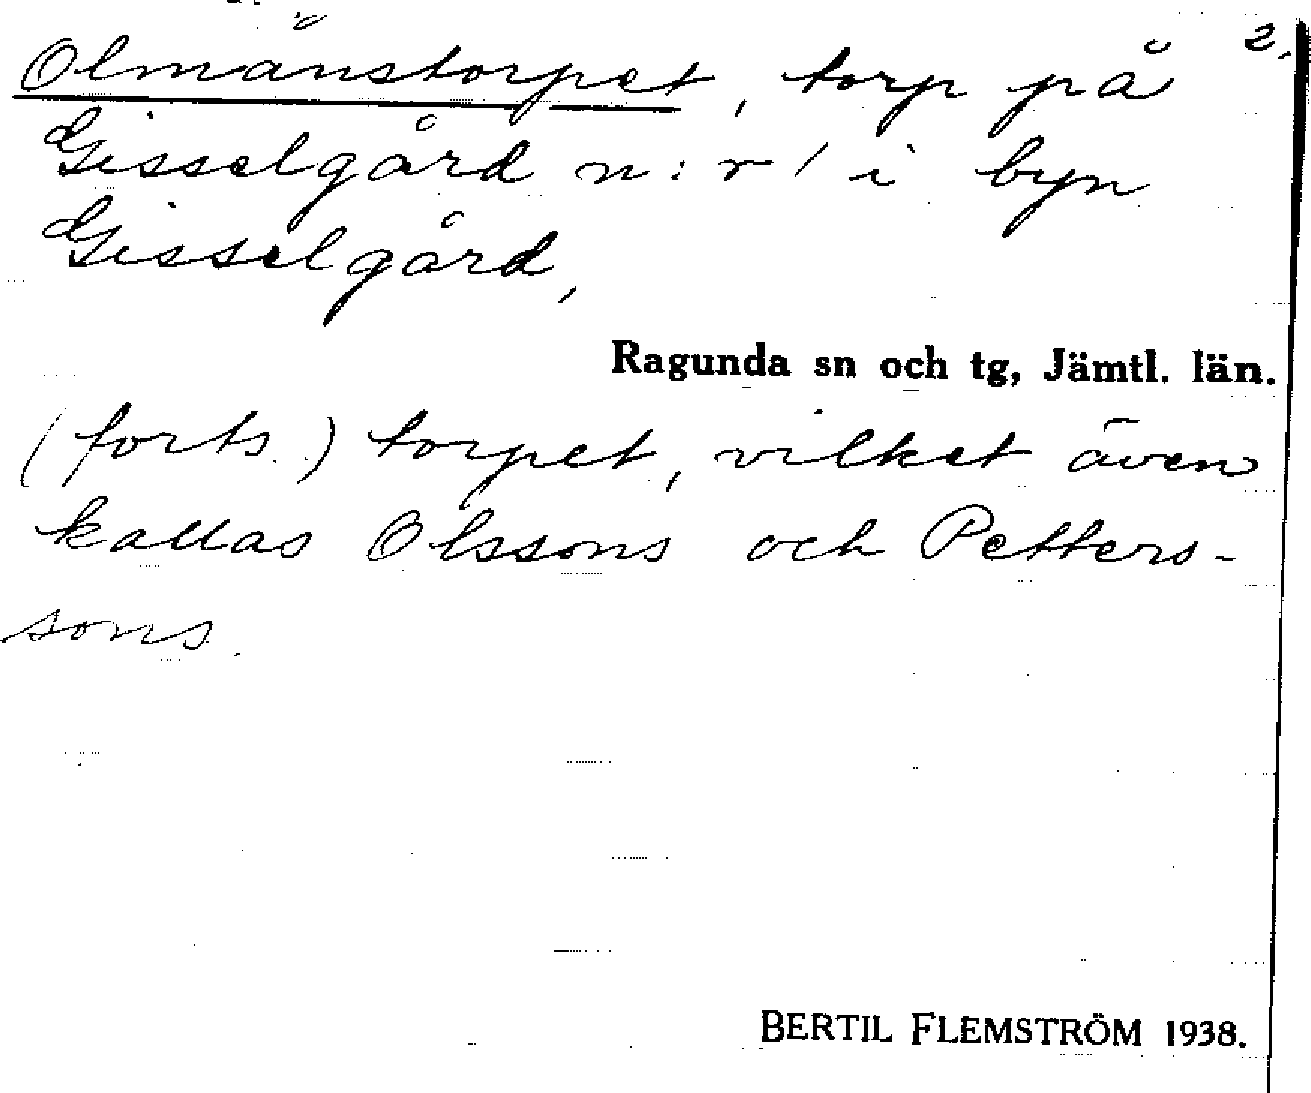 Olmånstorpet, torp på 2.
Gisselgård n:r 1 i byn
Gisselgård,
Ragunda sn och tg, Jämtl. län.
(forts.) torpet, vilket även
kallas Olssons och Petters-
sons.
BERTIL FLEMSTRÖM 1938.